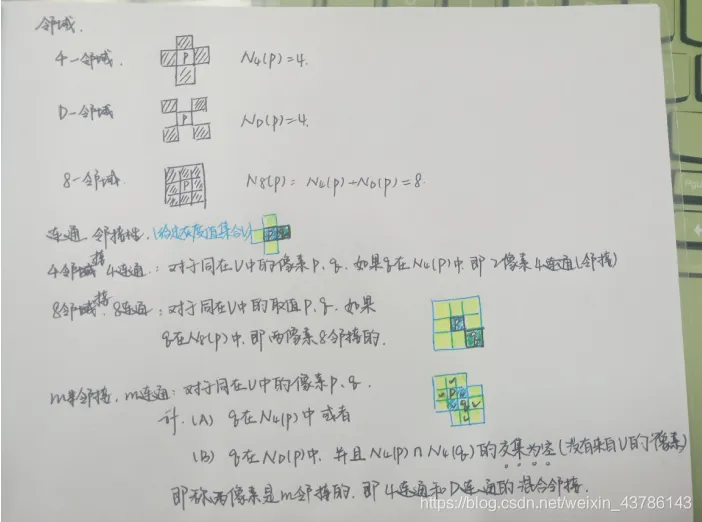 邻域.
4-邻域. P N4(P)=4.
D-邻域 P ND(P)=4.
8-邻域. P N8(P)= N4(P)+ND(P)=8.
连通 邻接性.(给定灰度值集合V)
4邻接 4连通.: 对于同在V中的像素P、q. 如果q在N4(P)中.即2像素4连通(邻接)
8邻接. 8连通: 对于同在V中的取值P、q. 如果
q在N8(P)中.即两像素8邻接的.
m邻接. m连通: 对于同在V中的像素P、q.
(A) q在N4(P)中 或者
(B) q在ND(P)中. 并且N4(P)∩N4(q)的交集为空(没有来自V的像素)
即称两像素是m邻接的. 即4连通和D连通的混合邻接.
https://blog.csdn.net/weixin_43786143